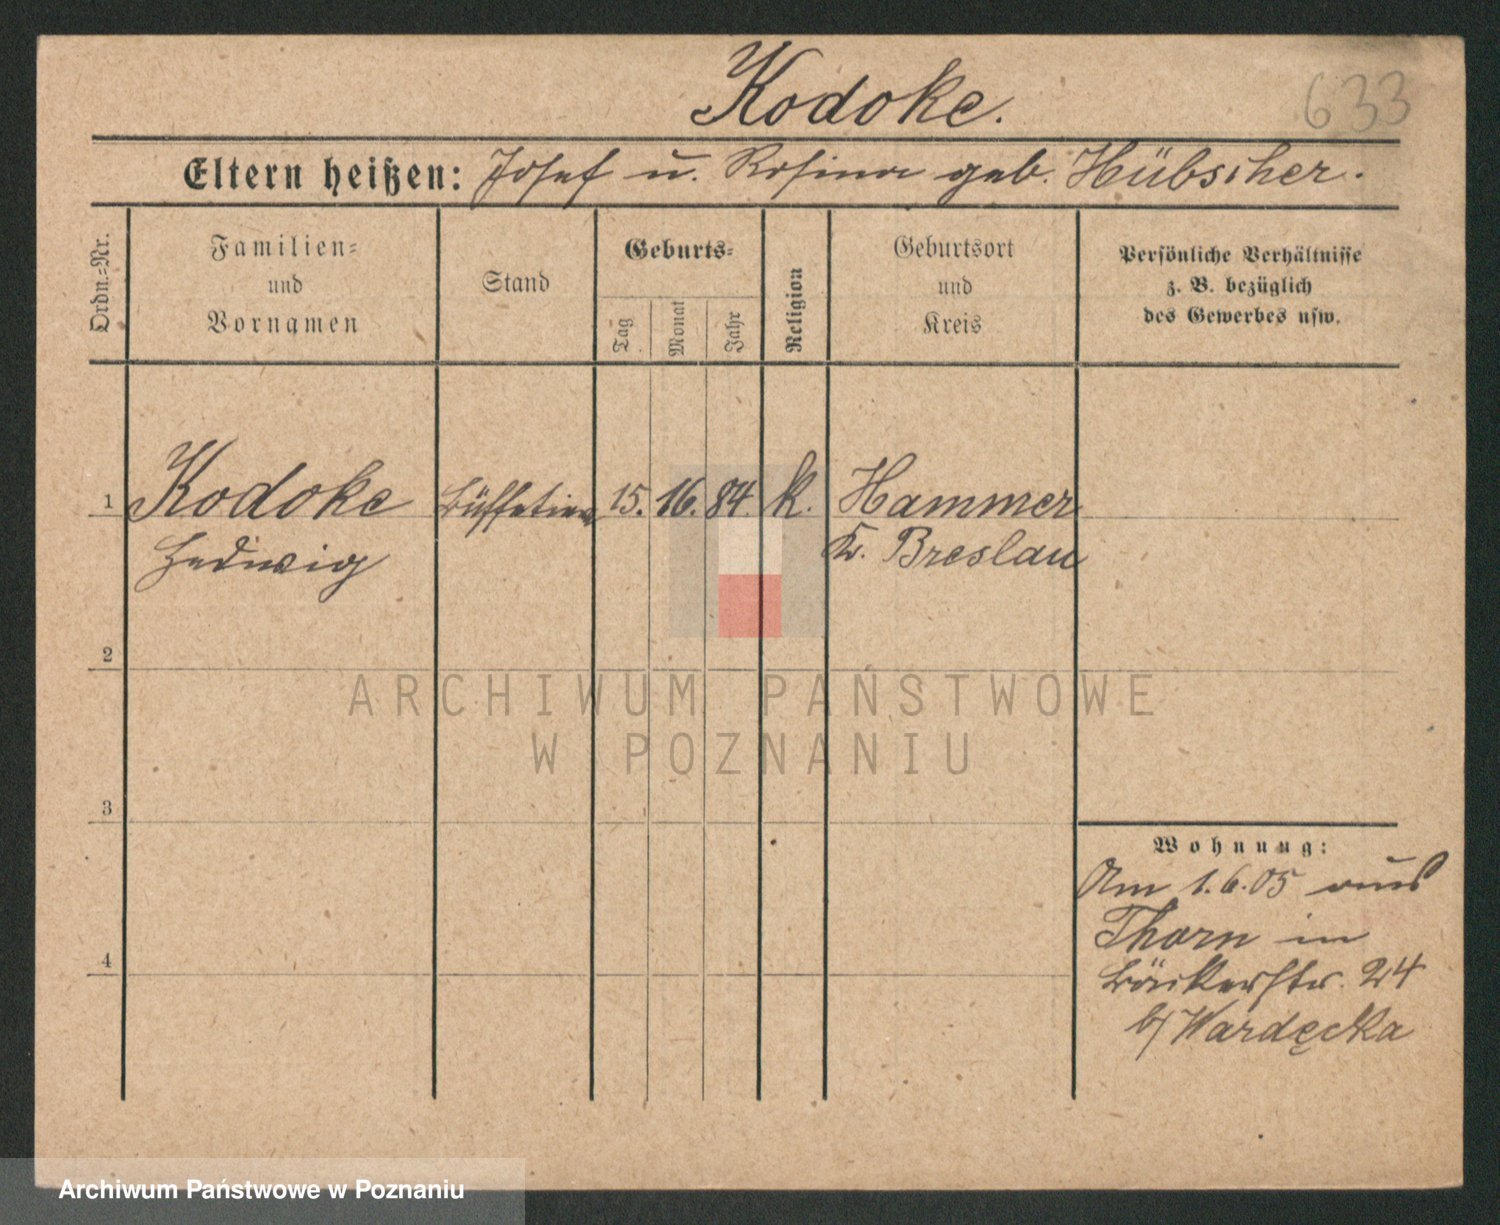 Kodoke.
633
Eltern heißen: Josef u. Rosina geb. Hübscher.
Ordn.-Nr.
Familien-
und
Vornamen
Stand
Geburts-
Tag
Monat
Jahr
Religion
Geburtsort
und
Kreis
Persönliche Verhältnisse
z. B. bezüglich
des Gewerbes usw.
1 Kodoke Büffetiere 15. 16. 84. k. Hammer
Hedwig Kr. Breslau
2
ARCHIWUM PAŃSTWOWE
W POZNANIU
3
Wohnung:
Am 1.6.05 aus
Thorn in
4
Bäckerstr. 24
b/ Wardęcka
Archiwum Państwowe w Poznaniu